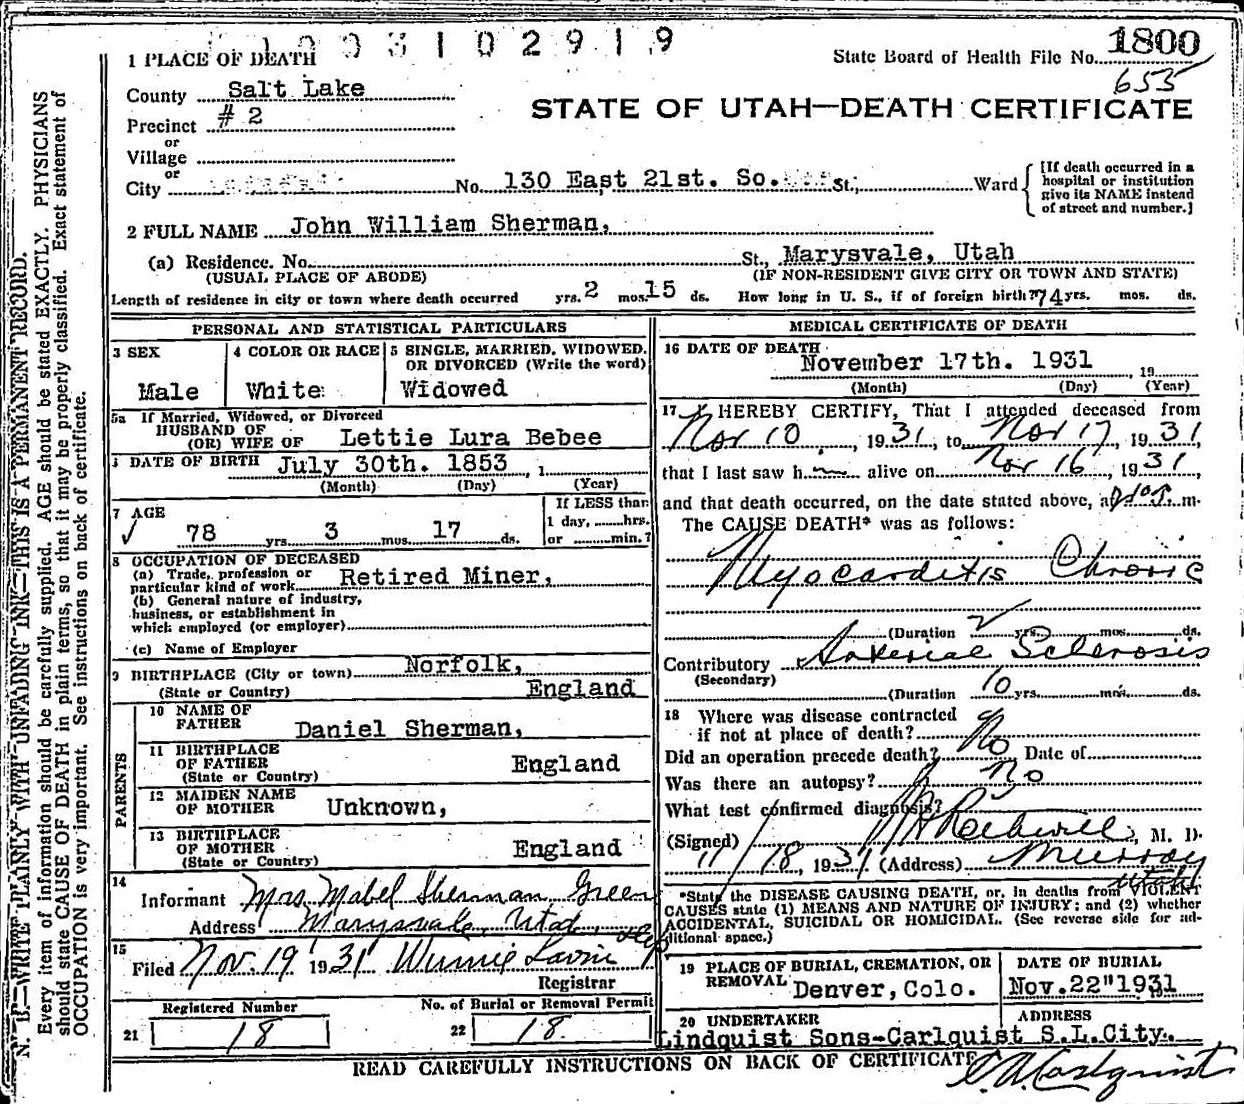 1003102919
State Board of Health File No. 1800
655
1 PLACE OF DEATH
County Salt Lake
STATE OF UTAH—DEATH CERTIFICATE
Precinct # 2
or
Village
or
City No. 130 East 21st. So. St., Ward
[If death occurred in a hospital or institution give its NAME instead of street and number.]
2 FULL NAME John William Sherman,
(a) Residence. No. St., Marysvale, Utah
(USUAL PLACE OF ABODE) (IF NON-RESIDENT GIVE CITY OR TOWN AND STATE)
Length of residence in city or town where death occurred yrs. 2 mos. 15 ds. How long in U. S., if of foreign birth? 74 yrs. mos. ds.
PERSONAL AND STATISTICAL PARTICULARS
3 SEX
Male
4 COLOR OR RACE
White
5 SINGLE, MARRIED, WIDOWED, OR DIVORCED (Write the word)
Widowed
5a If Married, Widowed, or Divorced
HUSBAND OF
(OR) WIFE OF Lettie Lura Bebee
DATE OF BIRTH July 30th. 1853, 1
(Month) (Day) (Year)
7 AGE
78 yrs. 3 mos. 17 ds.
If LESS than
1 day, hrs.
or min.?
8 OCCUPATION OF DECEASED
(a) Trade, profession or
particular kind of work Retired Miner,
(b) General nature of industry,
business, or establishment in
which employed (or employer)
(c) Name of Employer
9 BIRTHPLACE (City or town) Norfolk,
(State or Country) England
PARENTS
10 NAME OF
FATHER Daniel Sherman,
11 BIRTHPLACE
OF FATHER England
(State or Country)
12 MAIDEN NAME
OF MOTHER Unknown,
13 BIRTHPLACE
OF MOTHER England
(State or Country)
14
Informant Mrs Mabel Sherman Green
Address Marysvale, Utah
15
Filed Nov. 19 1931 Winnie Lavin
Registrar
Registered Number
21 18
No. of Burial or Removal Permit
22 18
MEDICAL CERTIFICATE OF DEATH
16 DATE OF DEATH
November 17th. 1931, 19
(Month) (Day) (Year)
17 I HEREBY CERTIFY, That I attended deceased from
Nov 10, 1931, to Nov 17, 1931,
that I last saw h alive on Nov 16, 1931,
and that death occurred, on the date stated above, at m.
The CAUSE DEATH* was as follows:
Myocarditis Chronic
(Duration 2 yrs. mos. ds.
Contributory Arterial Sclerosis
(Secondary)
(Duration 10 yrs. mos. ds.
18 Where was disease contracted
if not at place of death?
Did an operation precede death? No Date of
Was there an autopsy? No
What test confirmed diagnosis?
(Signed) Rothwell, M. D.
11/18, 1931 (Address) Murray
Utah
*State the DISEASE CAUSING DEATH, or, in deaths from VIOLENT
CAUSES state (1) MEANS AND NATURE OF INJURY; and (2) whether
ACCIDENTAL, SUICIDAL OR HOMICIDAL. (See reverse side for ad-
ditional space.)
19 PLACE OF BURIAL, CREMATION, OR REMOVAL Denver, Colo.
DATE OF BURIAL
Nov. 22" 1931
20 UNDERTAKER
Lindquist Sons-Carlquist
ADDRESS
S.L.City.
READ CAREFULLY INSTRUCTIONS ON BACK OF CERTIFICATE
C. A. Carlquist
N. B.—WRITE PLAINLY WITH UNFADING INK—THIS IS A PERMANENT RECORD.
Every item of information should be carefully supplied. AGE should be stated EXACTLY. PHYSICIANS
should state CAUSE OF DEATH in plain terms, so that it may be properly classified. Exact statement of
OCCUPATION is very important. See instructions on back of certificate.